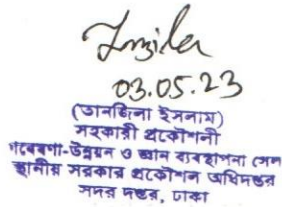 03.05.23
(তানজিনা ইসলাম)
সহকারী প্রকৌশলী
গবেষণা-উন্নয়ন ও জ্ঞান ব্যবস্থাপনা সেল
স্থানীয় সরকার প্রকৌশল অধিদপ্তর
সদর দপ্তর, ঢাকা